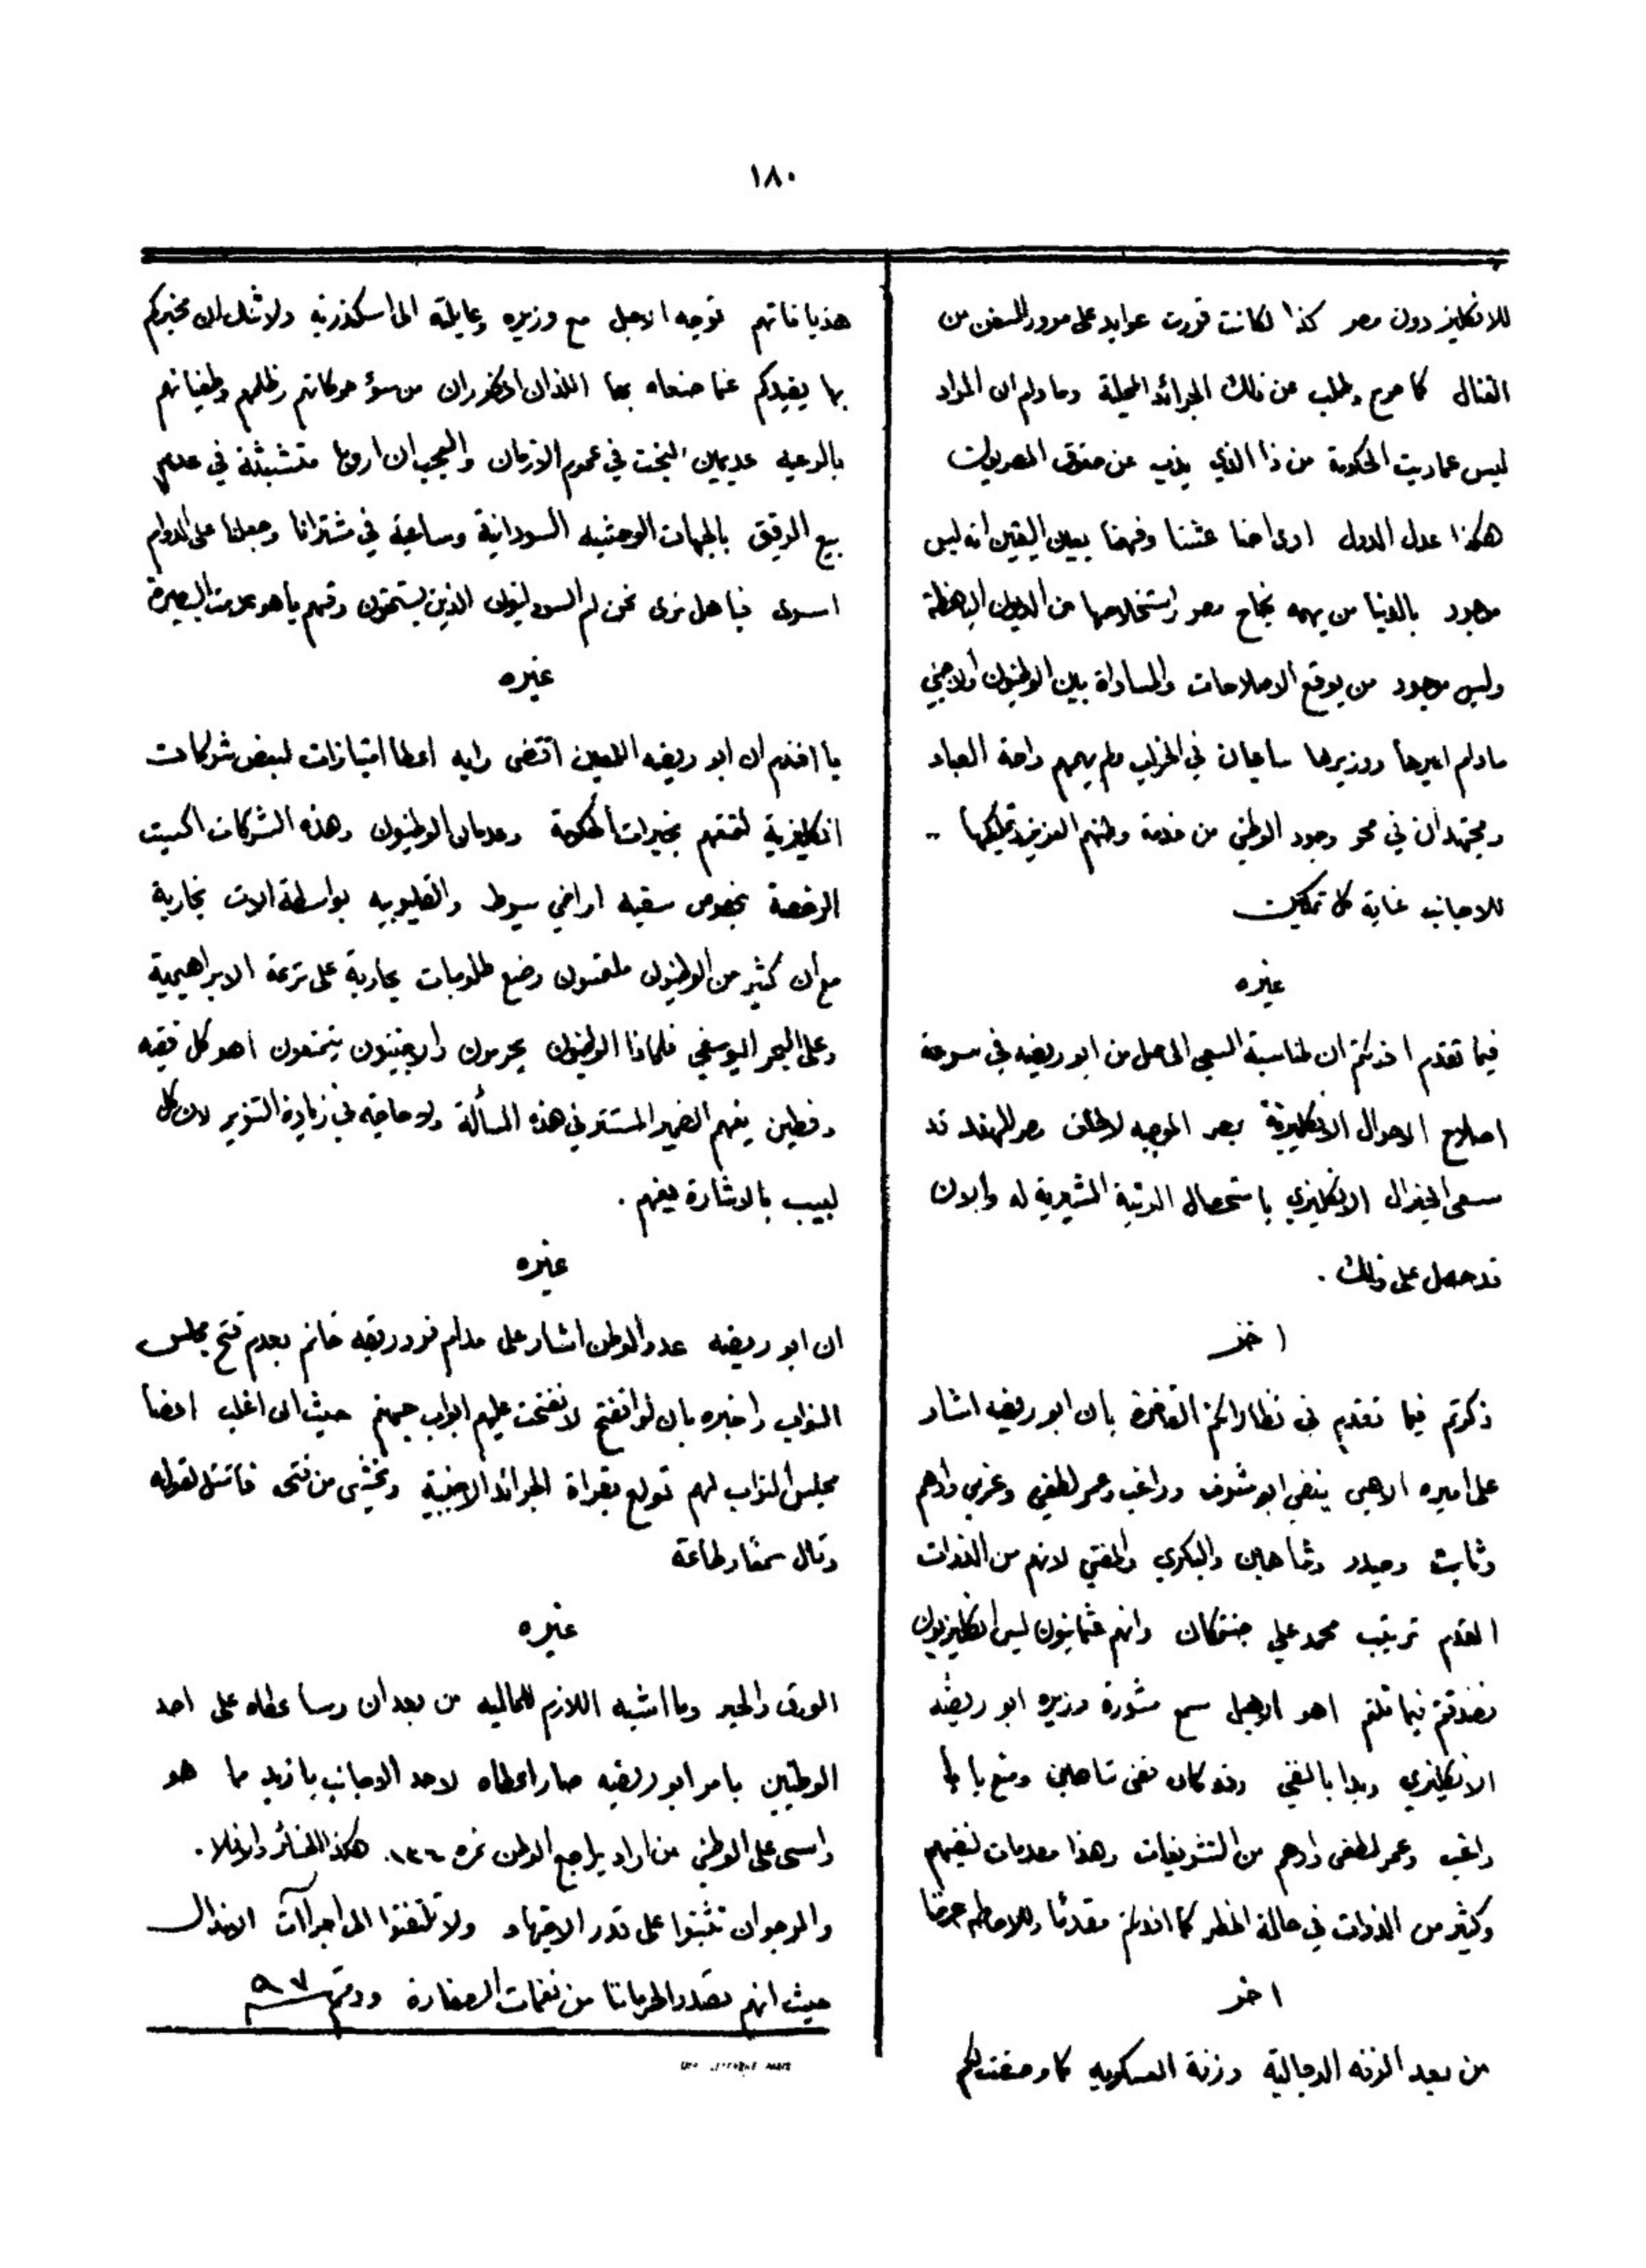 ١٨٠
للانكليز دون مصر كذا لكانت قررت عوايد على مرور السفن من
القنال كما صرح وطلب عن ذلك الجرائد المحلية وما دام ان المراد
ليس عماريت الحكومة من ذا الذي يذب عن حقوق المصريين
هكذا عدل الدول ادى احنا عشنا وفهمنا بعين اليقين انه ليس
موجود بالدنيا من يهمه نجاح مصر واستخلاصها من الديون الباهظة
وليس موجود من يوقع الاصلاحات والمساواة بين الوطنيون والاجنبي
مادام اميرها ووزيرها ساعيان في الخراب ولم يهمهم راحة العباد
ومجتهدان في محو وجود الوطني من خدمة وطنهم العزيز وتمليكها
للاجانب غاية كل تمكين
غيره
فيما تقدم اخذتم ان لمناسبة السعي الحاصل من ابو ريضه في سرعة
اصلاح الاحوال الانكليزية بمصر الموجبه لالحاق مصر للهند قد
سعى الجنرال الانكليزي باستحصال الرتبة المشيرية له والان
قد حصل على ذلك .
اخر
ذكرتم فيما تقدم في نظاراتكم الفاخرة بان ابو ريضه اشار
على اميره الاهبل ينفي ابو شنوف وراغب وعمر لطفي وخيري وادهم
وثابت وحيدر وشاهين والبكري والمفتي لانهم من الذوات
القدم ترتيب محمد علي جنتمكان وانهم عثمانيون ليس انكليزيون
فصدقتم فيما قلتم اهو الاهبل سمع مشورة وزيره ابو ريضه
الانكليزي وبدا بالنفي وقد كان نفى شاهين ومنع باب
راغب وعمر لطفي وادهم من التشريفات وهذا مقدمات نفيهم
وكثير من الذوات في حالة الخطر كما افدتكم مقدمًا وللاحاطه عرضنا
اخر
من بعد الزفه الدجالية وزفة العسكريه كما وصفت لكم
هذياناتهم توجه الاهبل مع وزيره وعايلته الى اسكندرية ولا شك ان مخبركم
بها يفيدكم عما صنعاه بها اللذان المذكوران من سؤ حركاتهم وظلمهم وطغيانهم
بالرعيه عديمين البخت في عموم الازمان والعجب ان اروبا متشبثة في عدم
بيع الرقيق بالجهات الوحشيه السودانية وساعية في مشترانا وجعلنا على الدوام
اسرى فيا هل ترى نحن لم السودانيون الذين يستحقون رقهم يا هو عدمت البصيرة
غيره
يا افندم ان ابو ريضه اللعين اقتضى رايه اعطا امتيازات لبعض شركات
انكليزية لتمتعهم بخيرات الحكومة وعدمان الوطنيون وهذه الشركات اكسبت
الرخصة بخصوص سقيه اراضي سيوط والقليوبيه بواسطة الات بخارية
مع ان كثير من الوطنيون ملتمسون وضع طلومبات بخارية على ترعة الابراهيمية
وعلى البحر اليوسفي فلماذا الوطنيون يحرمون والاجنبيون يتمتعون اهو كل فقيه
وفطين يفهم الضمير المستتر في هذه المسألة ولا حاجه في زيادة التنوير لان كل
لبيب بالاشارة يفهم .
غيره
ان ابو ريضه عدو الوطن اشار على مدام فرو رفيقه خانم بعدم فتح مجلس
النواب واخبره بان لو انفتح لانفتحت عليهم ابواب جهنم حيث ان اغلب اعضا
مجلس النواب لهم تولع بقراة الجرائد الاجنبية ونخشى من فتحه فامتثل لقوله
وقال سمعًا وطاعة
غيره
الورق والحبر وما اشبه اللازم للماليه من بعد ان رسا عطاه على احد
الوطنيين بامر ابو ريضه صار اعطاه لاحد الاجانب بازيد مما هو
راسى على الوطني من اراد يراجع الوطن نمره ١٣٦ هكذا الخسائر والا فلا .
والمرجو ان تثبتوا على قدر الاجتهاد ولا تلتفتوا الى اجراآت الانذال
حيث انهم تصدوا لحرماننا من نغمات الصفارة ودمتم ٩٧